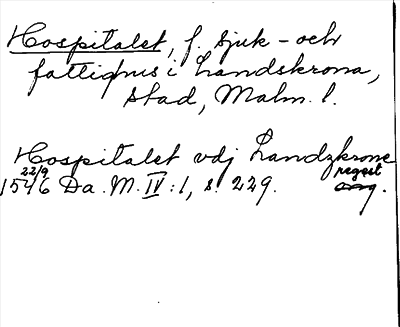 Hospitalet, f. sjuk- och
fattighus i Landskrona,
stad, Malm. l.
Hospitalet vdj Landzkrone
22/9 regest
1546 Da. M. IV:1, s. 229.